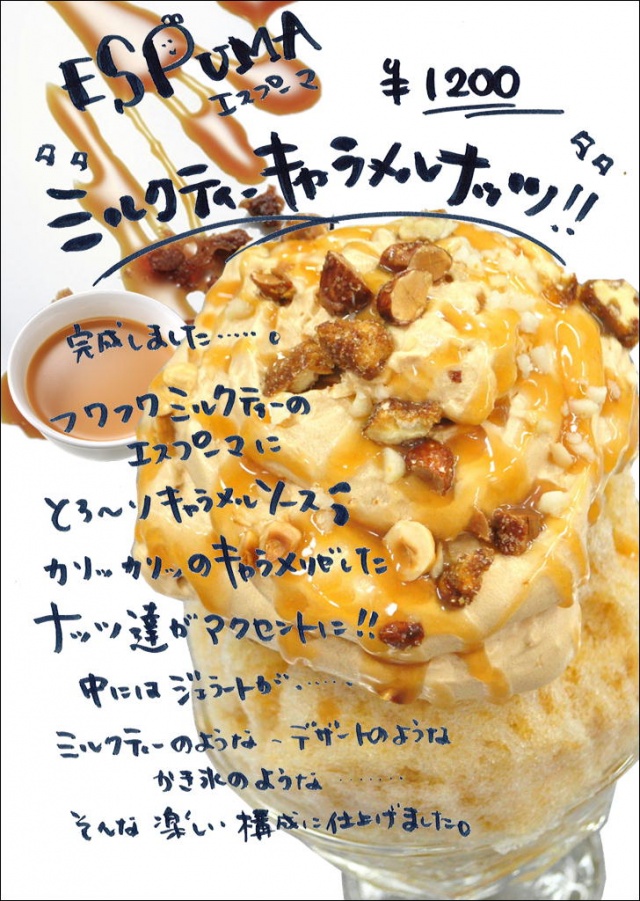 ESPUMA
エスプーマ
¥1200
タタ
タタ
ミルクティーキャラメルナッツ!!
完成しました……。
フワフワミルクティーの
エスプーマに
とろ〜りキャラメルソース
カリッカリッのキャラメリゼした
ナッツ達がアクセントに!!
中にはジェラートが……
ミルクティーのような、デザートのような
かき氷のような………
そんな楽しい構成に仕上げました。